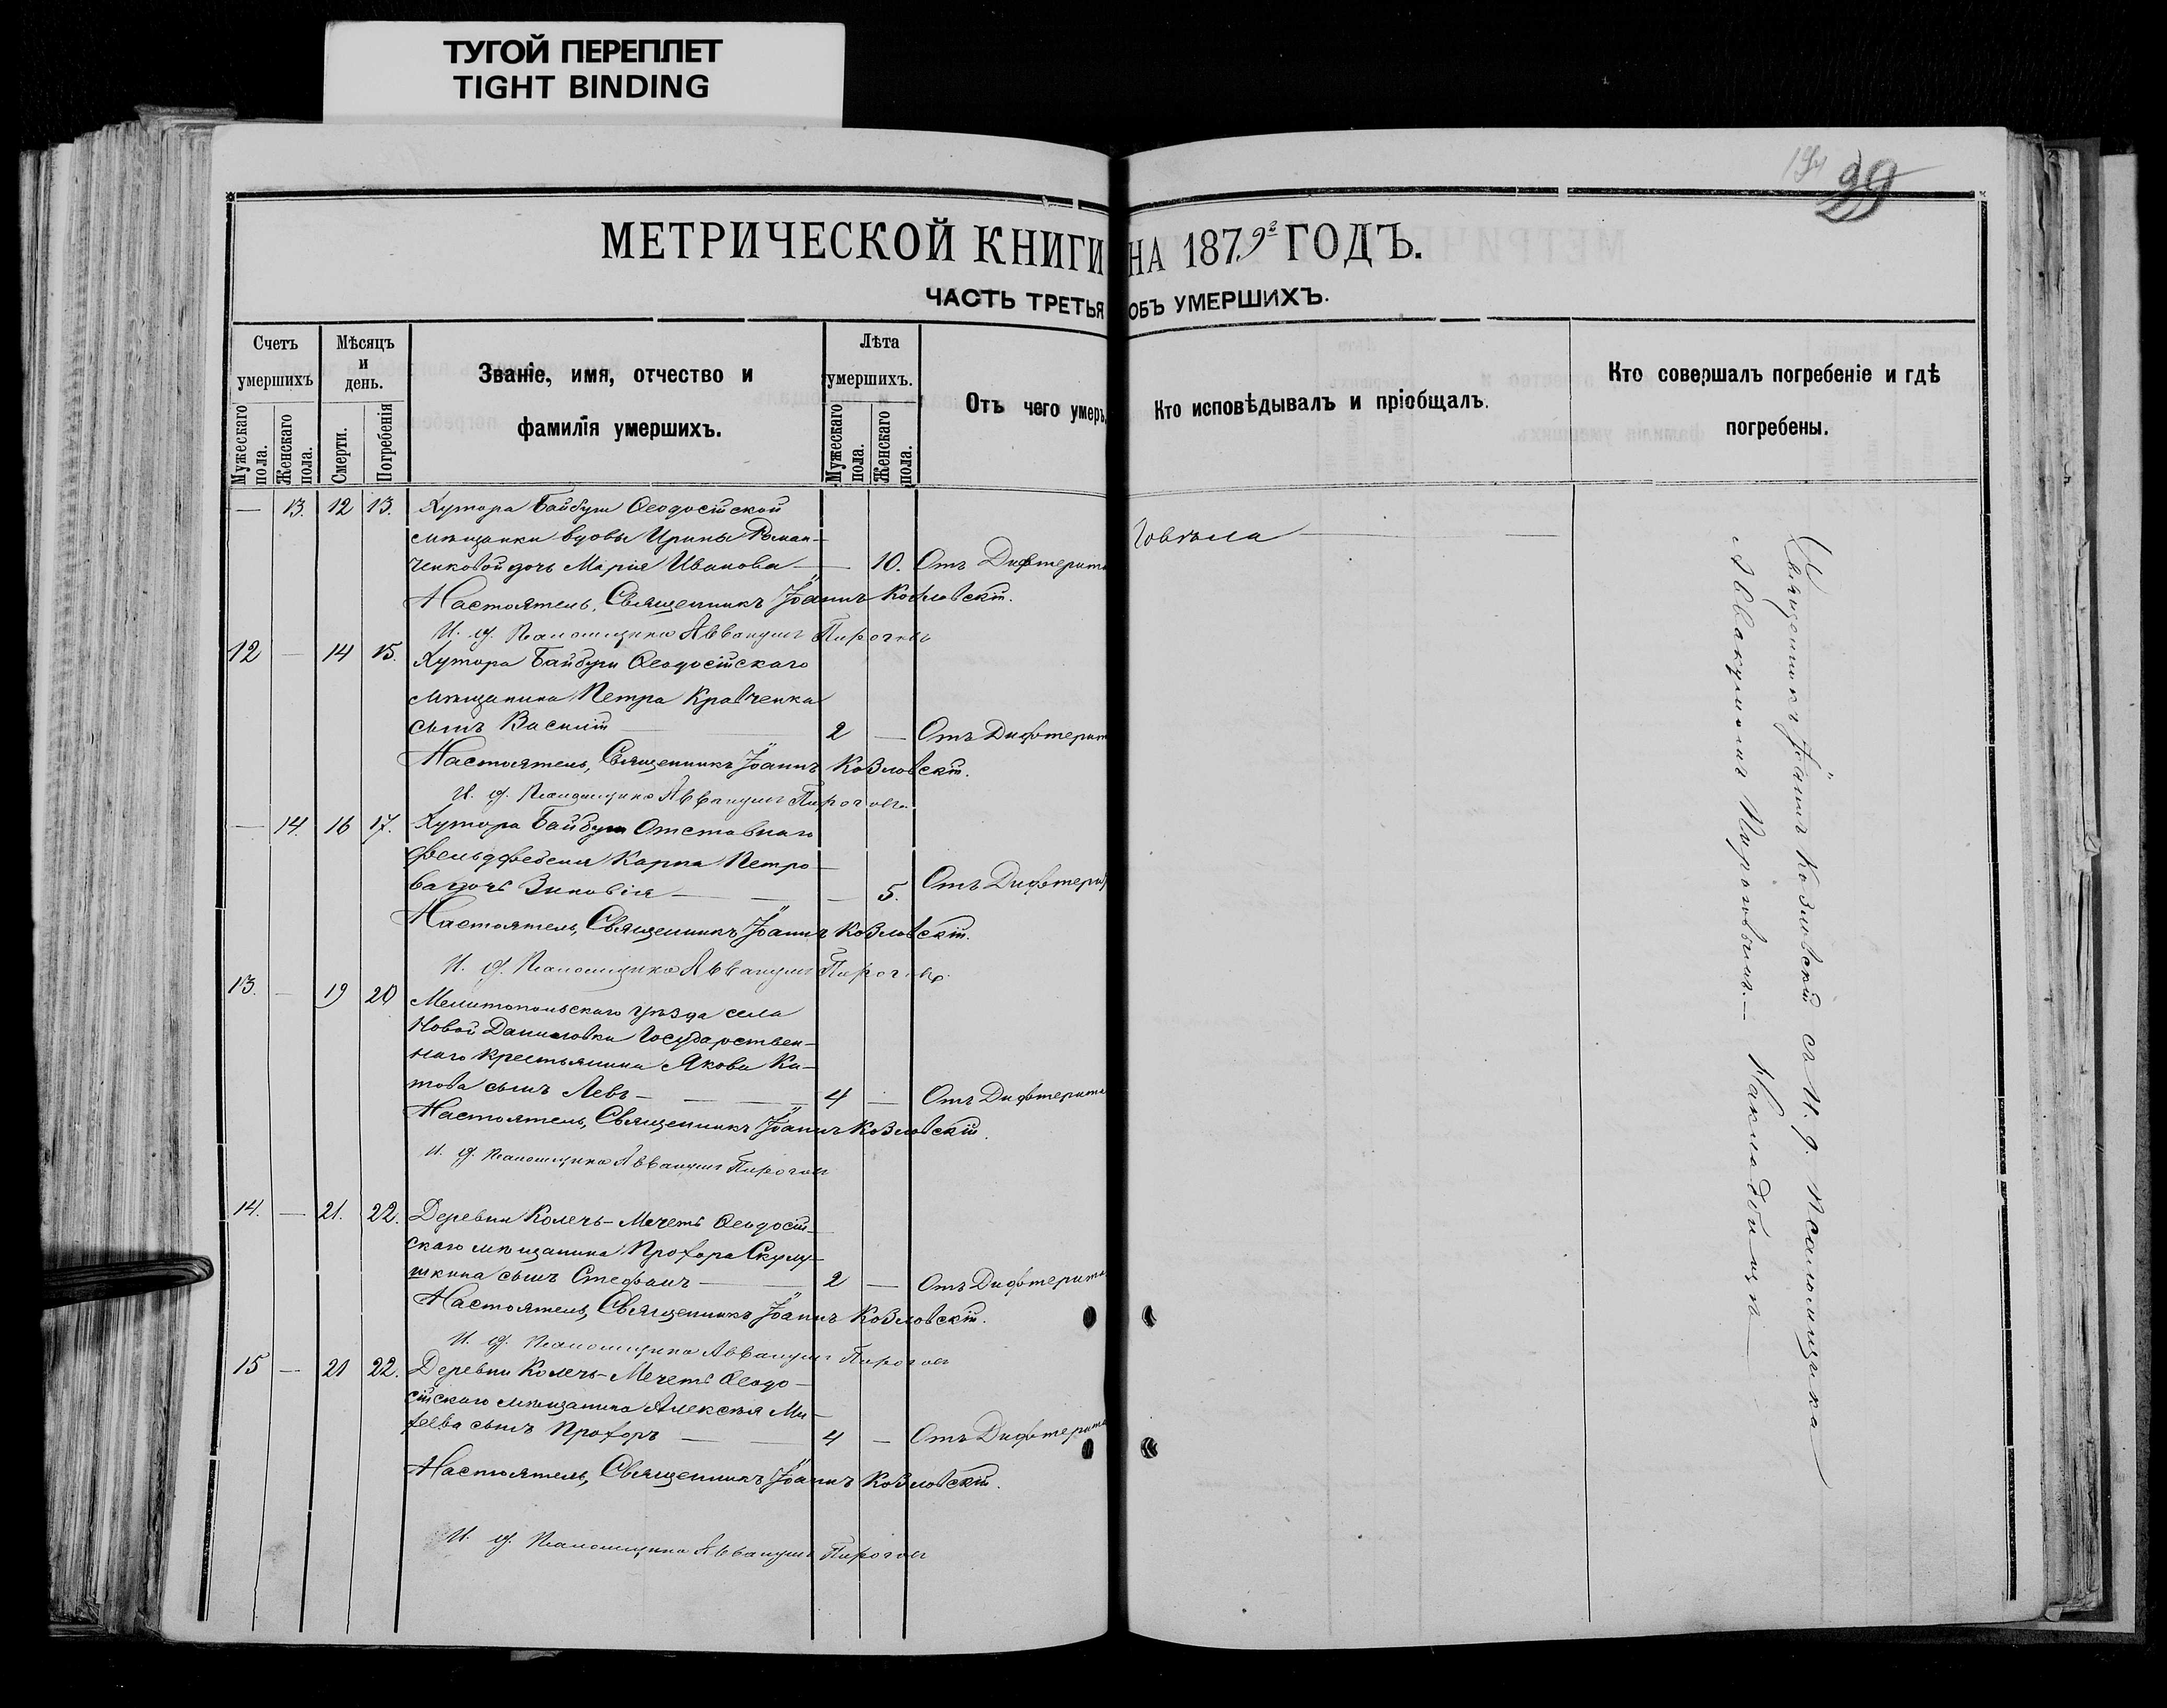 ТУГОЙ ПЕРЕПЛЕТ
TIGHT BINDING
29
МЕТРИЧЕСКОЙ КНИГИ НА 1879 ГОДЪ.
ЧАСТЬ ТРЕТЬЯ ОБЪ УМЕРШИХЪ.
Счетъ умершихъ
Мужескаго пола.
Женскаго пола.
Мѣсяцъ и день.
Смерти.
Погребенія
Званіе, имя, отчество и фамилія умершихъ.
Лѣта умершихъ.
Мужескаго пола.
Женскаго пола.
Отъ чего умеръ.
Кто исповѣдывалъ и пріобщалъ.
Кто совершалъ погребеніе и гдѣ погребены.
— 13. 12 13. Хутора Байбуги Ѳеодосійской
мѣщанки вдовы Ирины Роман-
ченковой дочь Марія Иванова — 10. Отъ Дифтерита Говѣла
Настоятель, Священникъ Іоаннъ Козловскій.
И. д. Псаломщика Аввакумъ Пироговъ
12 — 14 15. Хутора Байбуги Ѳеодосійскаго
мѣщанина Петра Кравченка
сынъ Василій 2 — Отъ Дифтерит
Настоятель, Священникъ Іоаннъ Козловскій.
И. д. Псаломщика Аввакумъ Пироговъ
— 14. 16 17. Хутора Байбуги Отставнаго
фельдфебеля Карпа Петро-
ва дочь Зиновія — 5. Отъ Дифтери
Настоятель, Священникъ Іоаннъ Козловскій.
И. д. Псаломщика Аввакумъ Пироговъ
13. — 19 20 Мелитопольскаго уѣзда села
Новой Даниловки Государствен-
наго крестьянина Якова Ки-
това сынъ Левъ — 4 — Отъ Дифтерита
Настоятель, Священникъ Іоаннъ Козловскій.
И. д. Псаломщика Аввакумъ Пироговъ
14. — 21. 22. Деревни Колечь-Мечеть Ѳеодосій-
скаго мѣщанина Прохора
сынъ Стефанъ — 2 — Отъ Дифтерита
Настоятель, Священникъ Іоаннъ Козловскій.
И. д. Псаломщика Аввакумъ Пироговъ
15 — 21 22. Деревни Колечь-Мечеть Ѳеодо-
сійскаго мѣщанина Алексѣя Ми-
хеева сынъ Прохоръ — 4 — Отъ Дифтерита
Настоятель, Священникъ Іоаннъ Козловскій.
И. д. Псаломщика Аввакумъ Пироговъ
Священникъ Іоаннъ Козловскій съ И. д. Псаломщика
Аввакумомъ Пироговымъ. — На кладбищѣ —